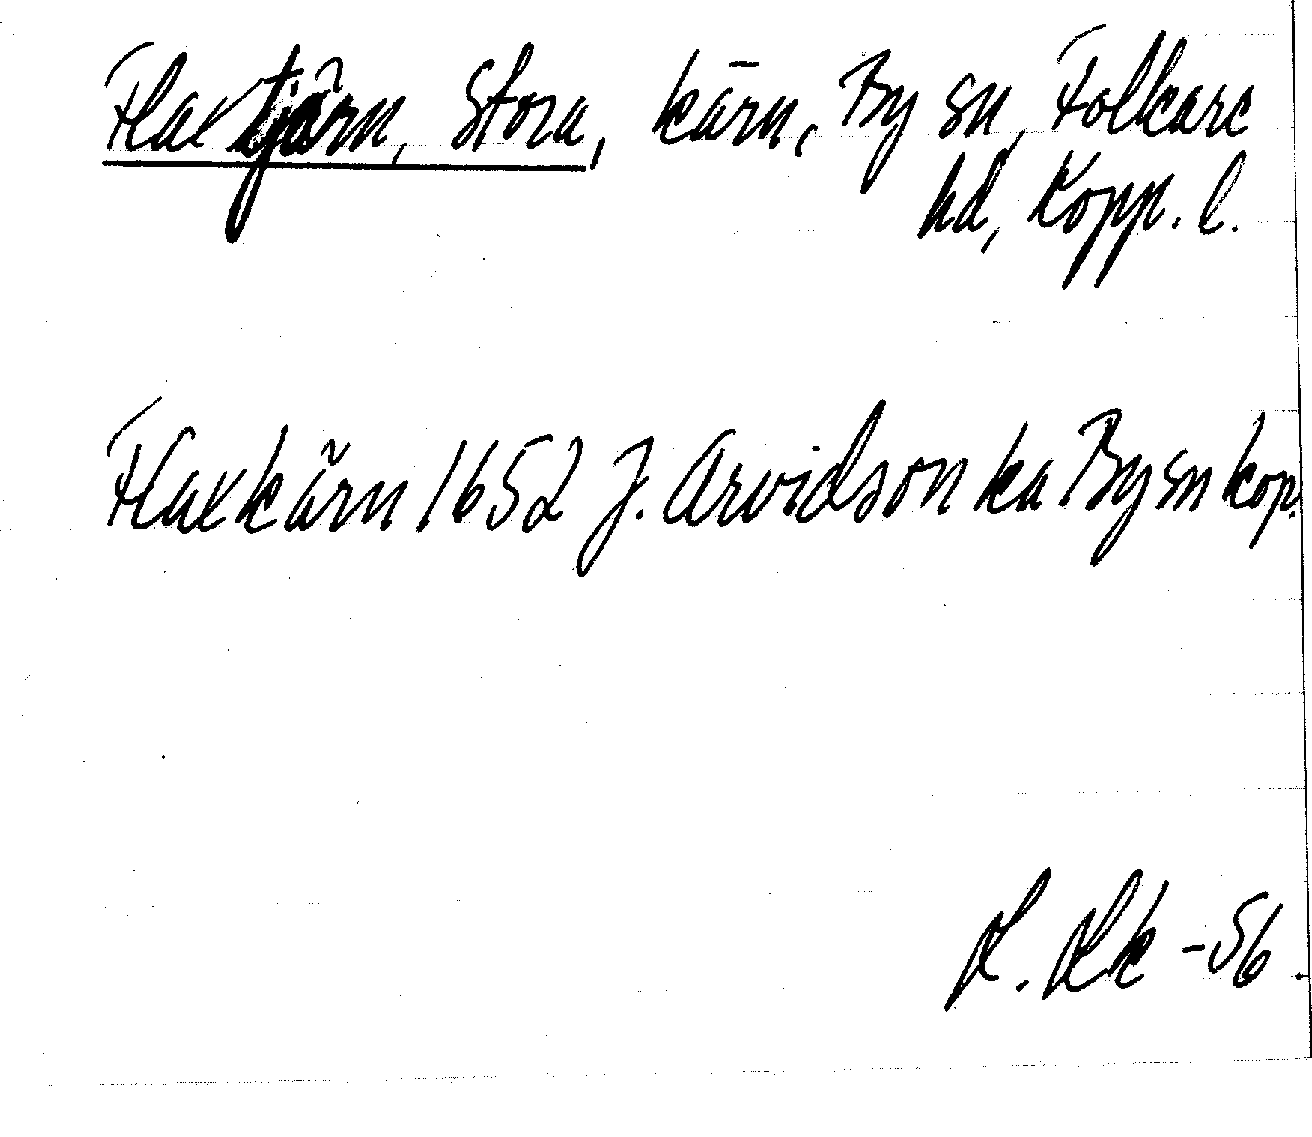 Flaxtjärn, Stora, kärn, By sn, Folkare
hd, Kopp. l.
Flaxkärn 1652 J. Arvidson ka By sn kop.
-56.